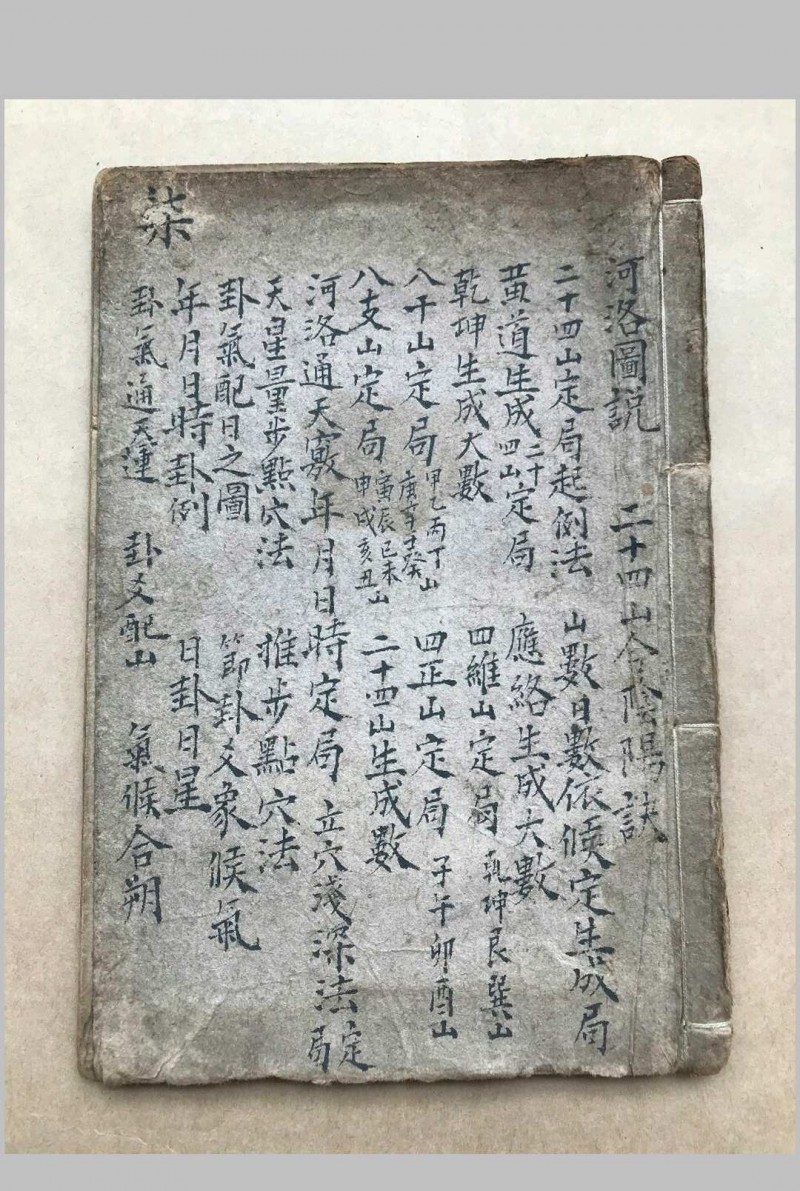 河洛圖說 二十四山合陰陽訣
二十四山定局起例法 山數日數依候定生成局
黃道生成二十四山定局 應絡生成大數
乾坤生成大數 四維山定局 乾坤艮巽山
八干山定局 甲乙丙丁山庚辛壬癸 四正山定局 子午卯酉山
八支山定局 寅辰巳未申戌亥丑山 二十四山生成數
河洛通天竅年月日時定局 立穴淺深法定局
天星量步點穴法 推步點穴法
卦氣配日之圖 節卦爻象候氣
年月日時卦例 日卦日星
卦氣通天運 卦爻配山 氣候合朔
柒